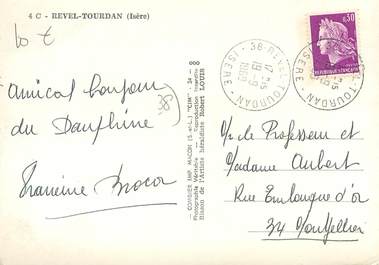 4 C - REVEL-TOURDAN (Isère)
10 €
0,30
RÉPUBLIQUE FRANÇAISE
38-REVEL-TOURDAN
ISÈRE
38
Amical bonjour
du Dauphiné
Francine
COMBIER IMP. MACON (S.-et-L.) "CIM"
Photographie Véritable - Reproduction interdite
Blason de l'Artiste héraldiste Robert LOUIS
M/r le Professeur et
Madame Aubert
Rue Embouque d'or
34 Montpellier